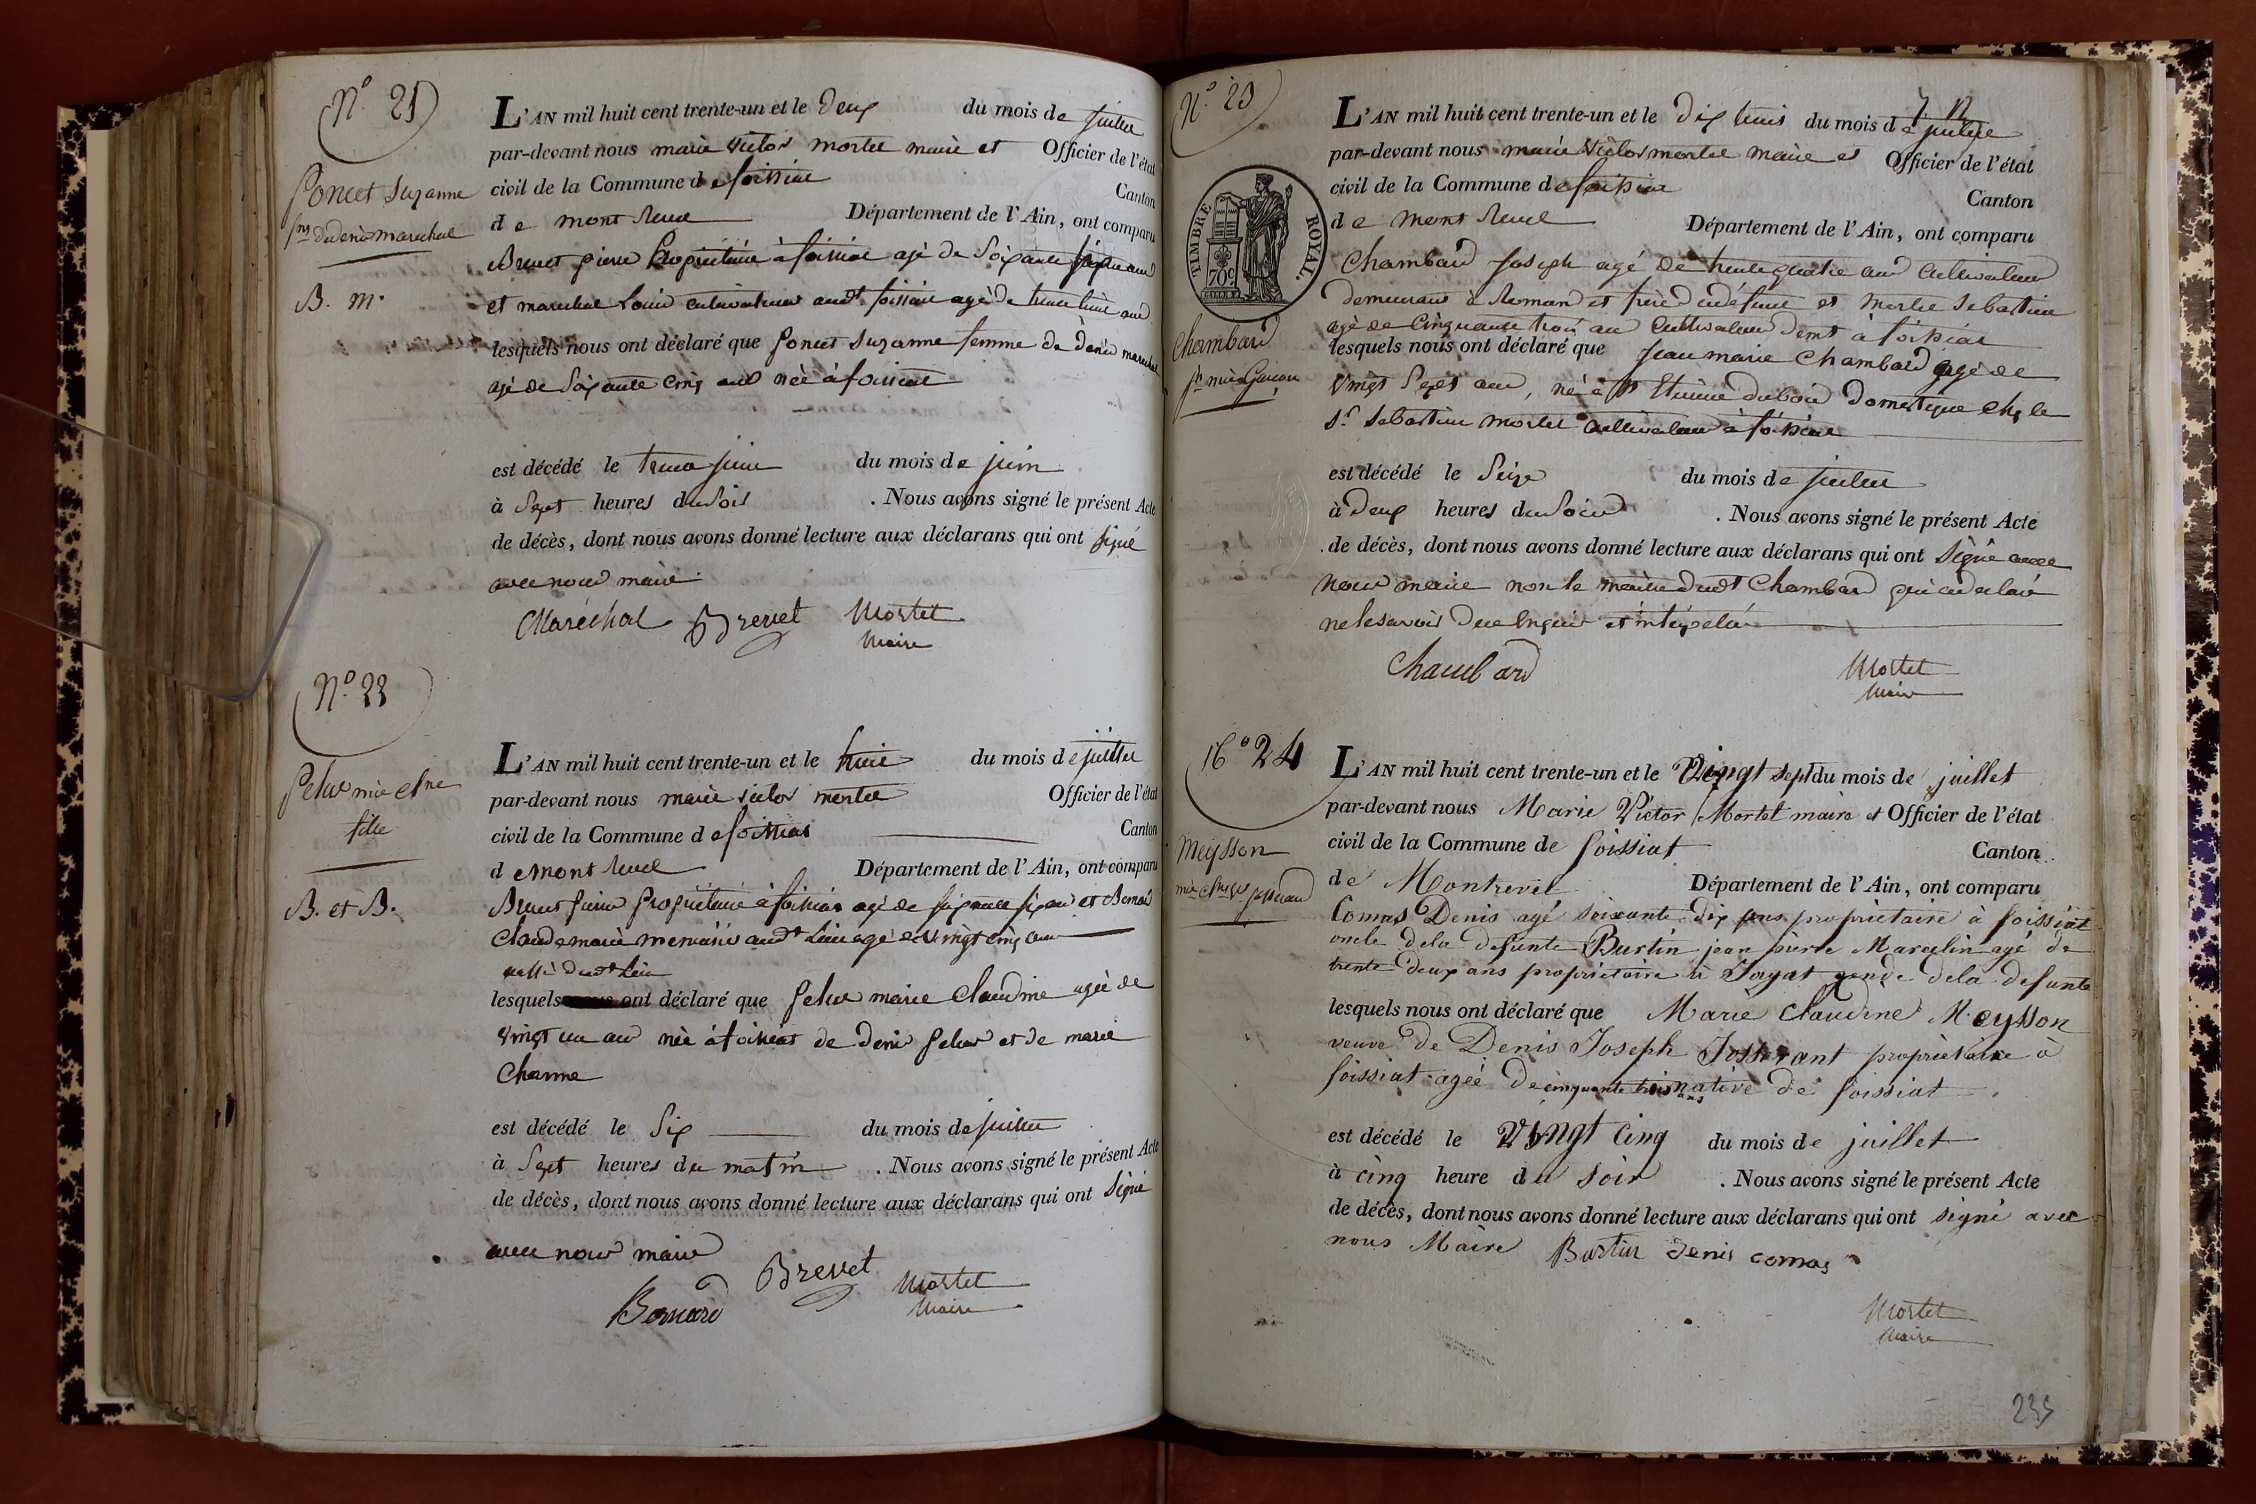 N.º 21
Poncet Suzanne
fme de denis marechal
B. M.
L'AN mil huit cent trente-un et le Deux du mois de juillet
par-devant nous marie victor mortel maire et Officier de l'état
civil de la Commune de foissiat Canton
de mont revel Département de l'Ain, ont comparu
Brevet pierre Propriétaire à foissiat agé de Soixante six ans
et marechal Louis cultivateur audt foissiat agé de trente huit ans
lesquels nous ont déclaré que poncet suzanne femme de denis marechal
agé de Soixante cinq ans née à foissiat
est décédé le trente juin du mois de juin
à Sept heures du Soir . Nous avons signé le présent Acte
de décès, dont nous avons donné lecture aux déclarans qui ont signé
avec nous maire
Maréchal Brevet Mortel
Maire
N.º 22
Pelus mie Clne
fille
B. et B.
L'AN mil huit cent trente-un et le huit du mois de juillet
par-devant nous marie victor mortel Officier de l'état
civil de la Commune de foissiat Canton
de Mont revel Département de l'Ain, ont comparu
Brevet pierre propriétaire à foissiat agé de soixante six ans et Bernard
Claude marie menuisier audt Lieu agé de vingt cinq ans
dudt Lieu
lesquels ont déclaré que pelus marie Claudine agée de
vingt un ans née à foissiat de denis pelus et de marie
Charme
est décédé le Six du mois de juillet
à Sept heures du matin . Nous avons signé le présent Acte
de décès, dont nous avons donné lecture aux déclarans qui ont Signé
avec nous maire
Bernard Brevet Mortel
Maire
N.º 23
TIMBRE ROYAL.
70c
Chambard
jn mie Garçon
L'AN mil huit cent trente-un et le Dix huit du mois de juillet
par-devant nous marie victor mortel maire et Officier de l'état
civil de la Commune de foissiat Canton
de mont revel Département de l'Ain, ont comparu
Chambard joseph agé de trente quatre ans cultivateur
demeurant à Romans et frère du défunt et mortel Sebastien
agé de Cinquante trois ans cultivateur demt à foissiat
lesquels nous ont déclaré que jean marie Chambard agé de
vingt Sept ans, né à St Etienne du bois Domestique chez le
Sr Sebastien mortel cultivateur à foissiat
est décédé le Seize du mois de juillet
à deux heures du Soir . Nous avons signé le présent Acte
de décès, dont nous avons donné lecture aux déclarans qui ont Signé avec
nous maire non le Chambard qui a déclaré
ne le savoir de ce enquis et interpelé
Chambard Mortel
Maire
Nº 24
Meysson
mie Clne Vve josserand
L'AN mil huit cent trente-un et le Vingt sept du mois de juillet
par-devant nous Marie Victor Mortel maire et Officier de l'état
civil de la Commune de foissiat Canton
de Montrevel Département de l'Ain, ont comparu
Comas Denis agé soixante dix ans propriétaire à foissiat
oncle dela defunte Burtin jean pierre Marcelin agé de
trente deux ans propriétaire à Jayat gendre dela defunte
lesquels nous ont déclaré que Marie Claudine Meysson
veuve de Denis Joseph Josserant propriétaire à
foissiat agée de cinquante trois ans native de foissiat
est décédé le Vingt cinq du mois de juillet
à cinq heure du soir . Nous avons signé le présent Acte
de décès, dont nous avons donné lecture aux déclarans qui ont signé avec
nous Maire Burtin denis comas
Mortel
Maire
235